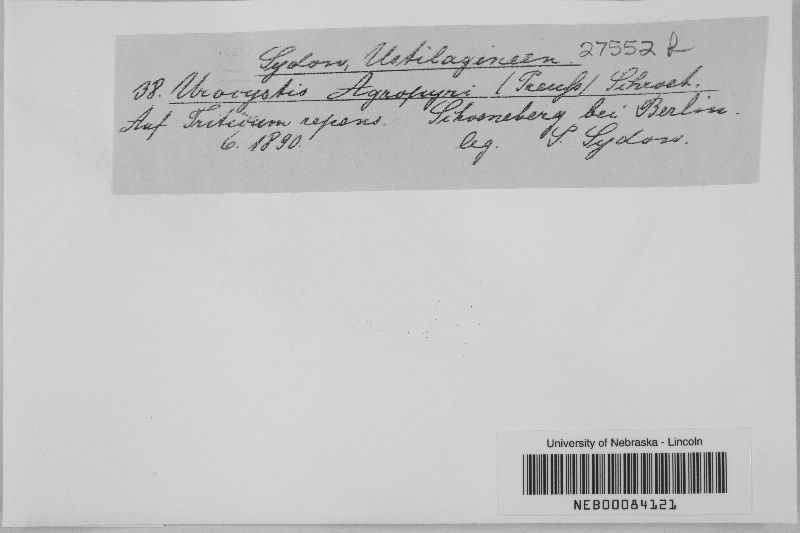 Sydow, Ustilagineen. 27552 b
38. Urocystis Agropyri (Preuss) Schroet.
Auf Triticum repens. Schoeneberg bei Berlin.
6. 1890. leg. P. Sydow.
University of Nebraska - Lincoln
NEB00084121